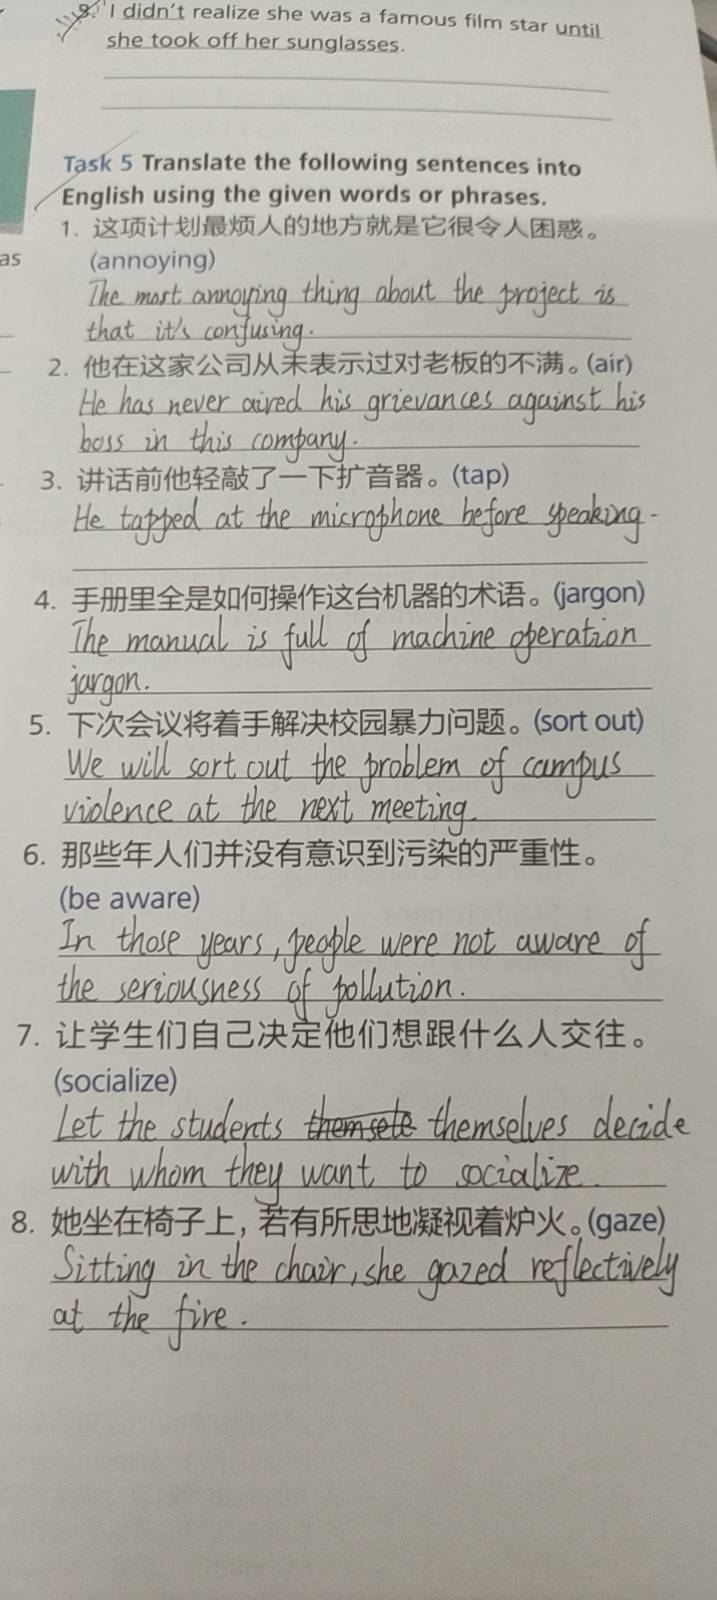 8. I didn't realize she was a famous film star until
she took off her sunglasses.
Task 5 Translate the following sentences into
English using the given words or phrases.
1. 这项计划最烦人的地方就是它很令人困惑。
as
(annoying)
The most annoying thing about the project is
that it's confusing.
2. 他在这家公司从未表示过对老板的不满。(air)
He has never aired his grievances against his
boss in this company.
3. 讲话前他轻敲了一下扩音器。(tap)
He tapped at the microphone before speaking.
4. 手册里全是如何操作这台机器的术语。(jargon)
The manual is full of machine operation
jargon.
5. 下次会议将着手解决校园暴力问题。(sort out)
We will sort out the problem of campus
violence at the next meeting.
6. 那些年人们并没有意识到污染的严重性。
(be aware)
In those years, people were not aware of
the seriousness of pollution.
7. 让学生们自己决定他们想跟什么人交往。
(socialize)
Let the students themselves decide
with whom they want to socialize.
8. 她坐在椅子上，若有所思地凝视着炉火。(gaze)
Sitting in the chair, she gazed reflectively
at the fire.